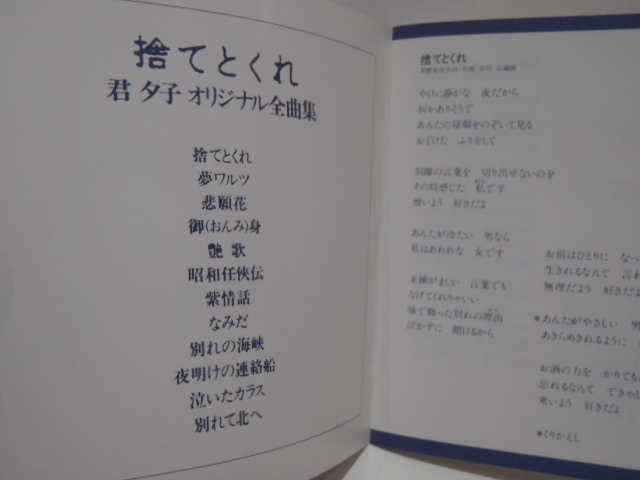 捨てとくれ
君 夕子 オリジナル全曲集
捨てとくれ
夢ワルツ
悲願花
御(おんみ)身
艶 歌
昭和任侠伝
紫情話
なみだ
別れの海峡
夜明けの連絡船
泣いたカラス
別れて北へ
捨てとくれ
やけに静かな 夜だから
何かありそうで
あんたの寝顔をのぞいて見る
おどけた ふりをして
別離の言葉を 切り出せないのを
その時感じた 私です
憎いよう 好きだよ
あんたが冷たい 男なら
私はあわれな 女です
未練がましい 言葉でも
なげてくれりゃいい
嘘で飾った別れの理由
泣かずに 聞けるから
お前はひとりに なっ
生きれるなんて 言わ
無理だよう 好きだよ
*あんたがやさしい 男
あきらめきれるように
お酒の力を かりても
忘れるなんて できやし
寒いよう 好きだよ
*くりかえし